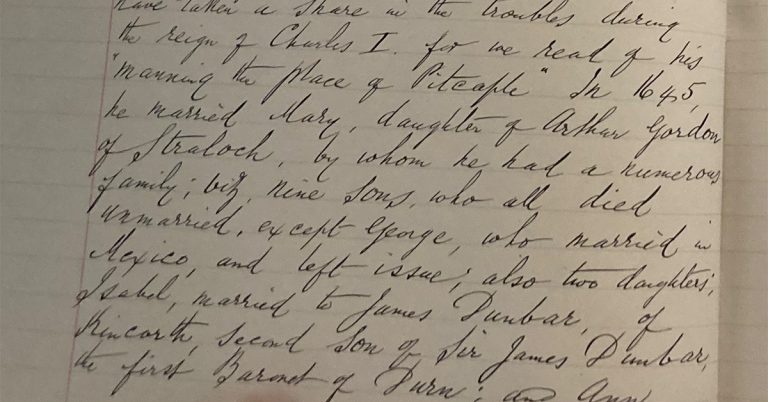 have taken a share in the troubles during
the reign of Charles I. for we read of his
"manning the place of Pitcaple" In 1645,
he married Mary, daughter of Arthur Gordon
of Straloch, by whom he had a numerous
family; viz, nine sons, who all died
unmarried, except George, who married in
Mexico, and left issue; also two daughters;
Isabel, married to James Dunbar, of
Kincorth, second son of Sir James Dunbar,
the first Baronet of Durn; and Ann